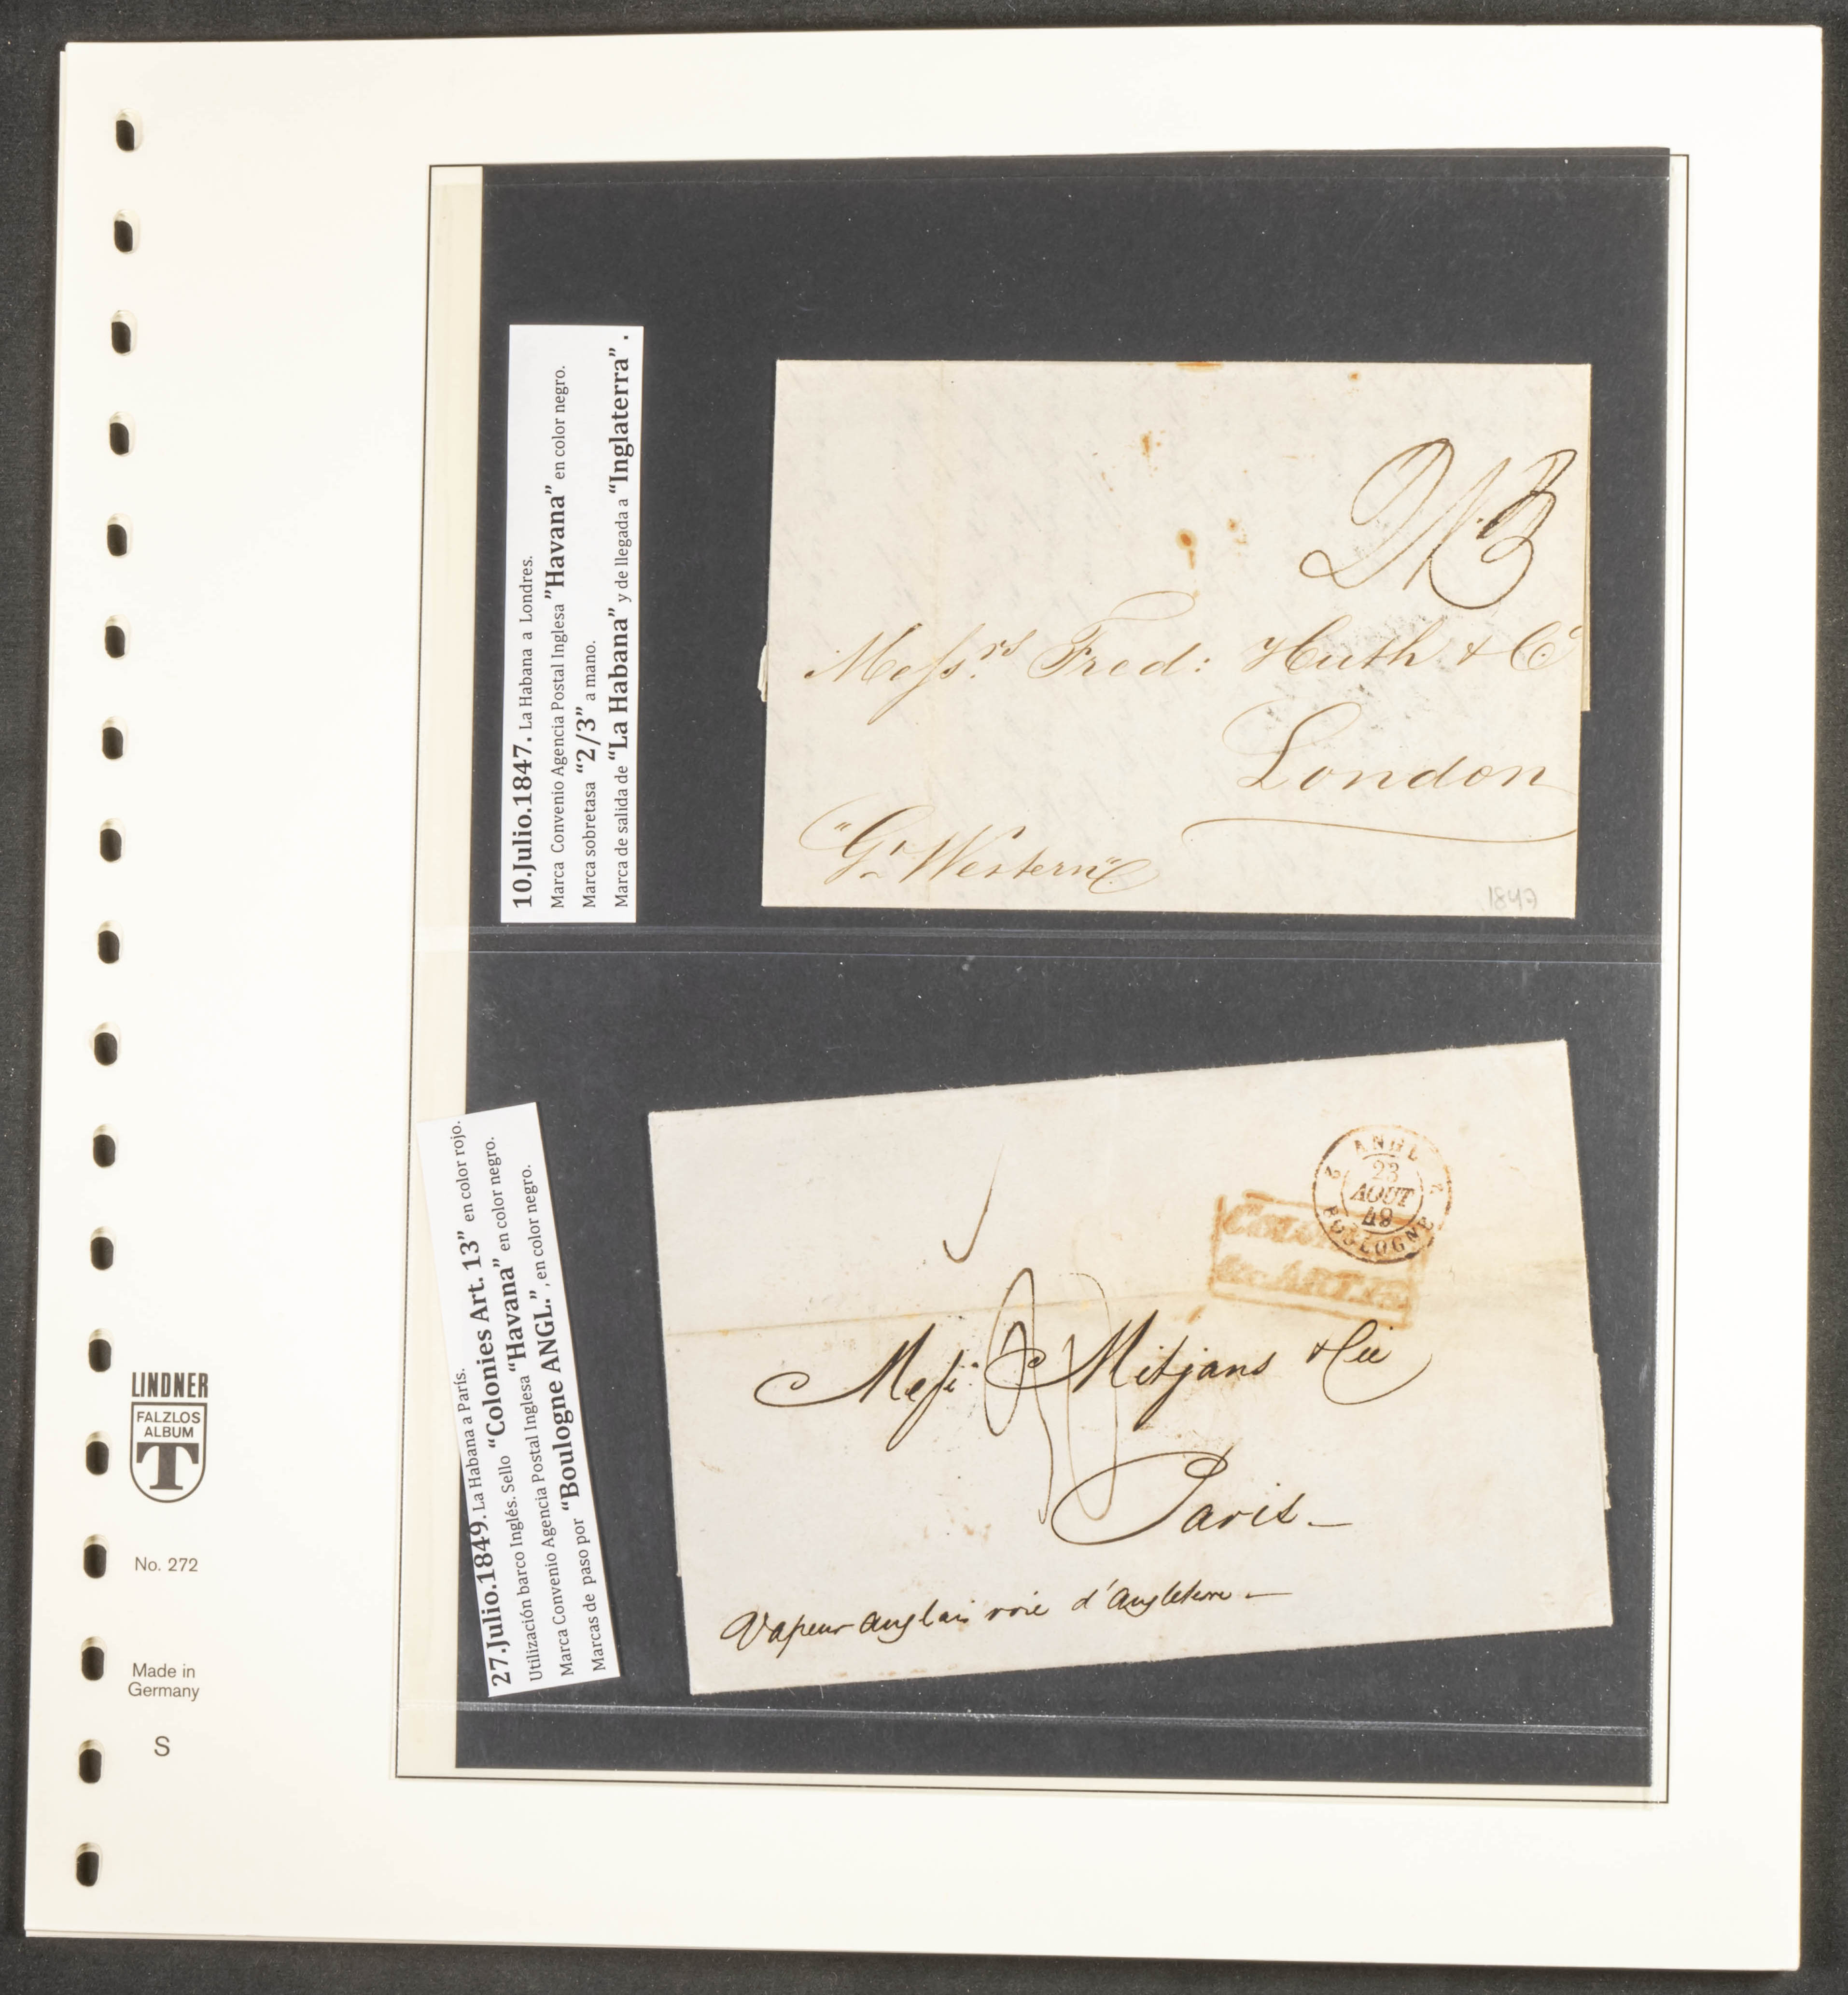 10.Julio.1847. La Habana a Londres.
Marca Convenio Agencia Postal Inglesa "Havana" en color negro.
Marca sobretasa "2/3" a mano.
Marca de salida de "La Habana" y de llegada a "Inglaterra".
2/3
Messrs Fred: Huth & Co
London
"Gt Western"
1847
27.Julio.1849. La Habana a París.
Utilización barco Inglés. Sello "Colonies Art. 13" en color rojo.
Marca Convenio Agencia Postal Inglesa "Havana" en color negro.
Marcas de paso por "Boulogne ANGL.", en color negro.
ANGL
2 2
23
AOUT
49
BOULOGNE
Colonies
&c. ART. 13.
Messrs Mitjans & Cie
Paris
Vapeur anglais voie d'Angleterre
LINDNER
FALZLOS
ALBUM
T
No. 272
Made in
Germany
S